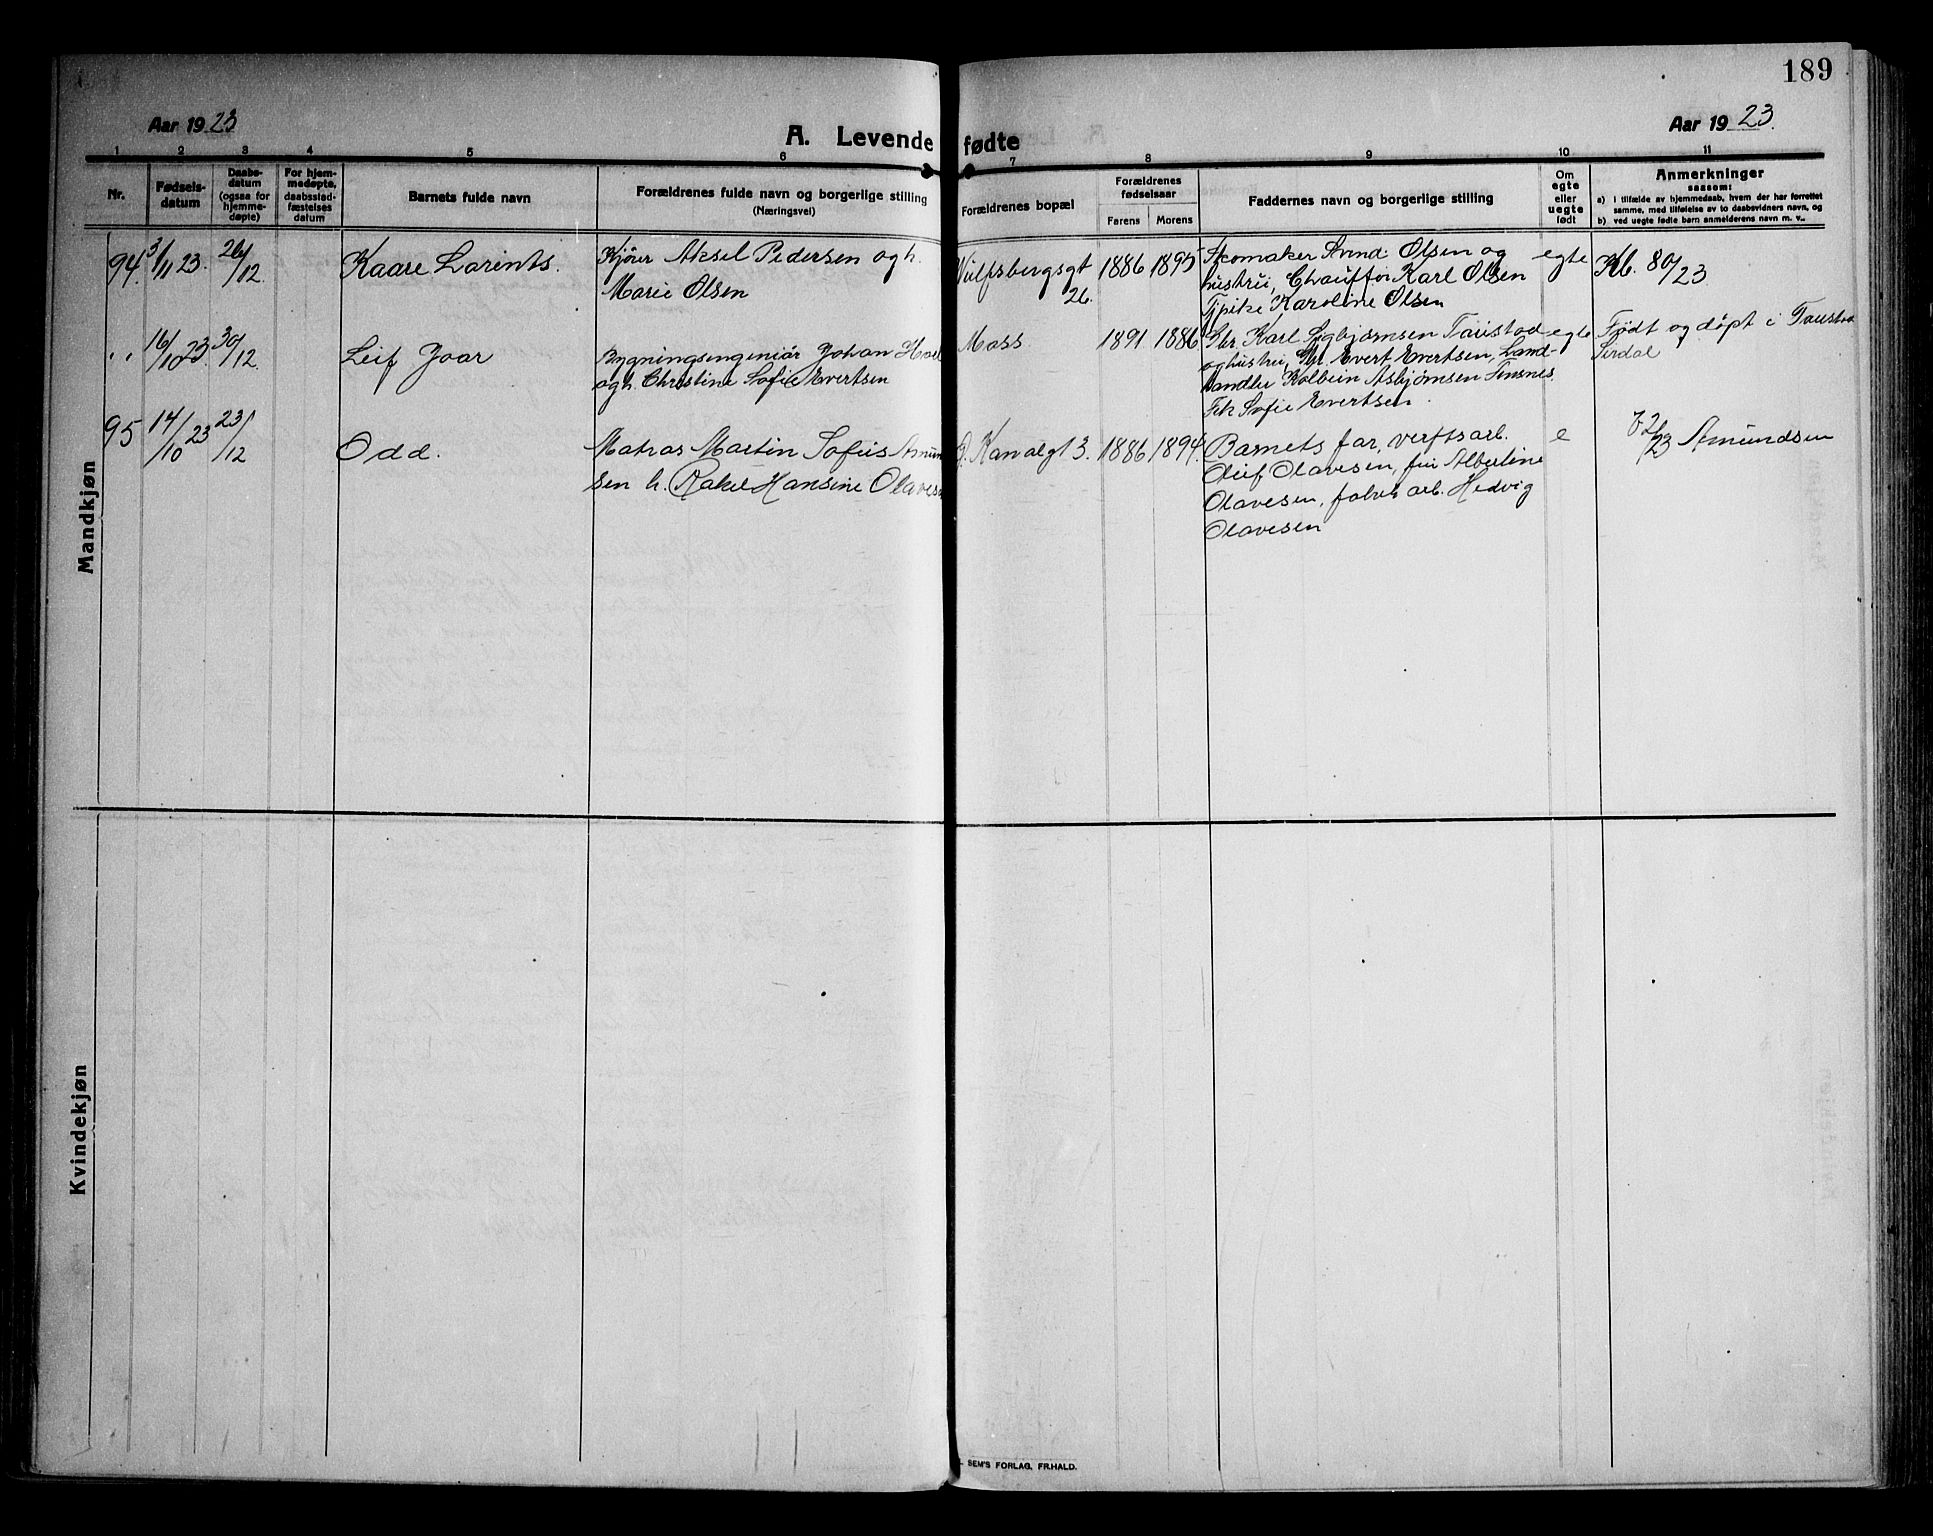 189
Aar 1923
A. Levende fødte
Aar 1923.
1 2 3 4 5 6 7 8 9 10 11
Nr.
Fødsels-
datum
Daabs-
datum
(ogsaa for
hjemme-
døpte)
For hjem-
medøpte,
daabsstad-
fæstelses
datum
Barnets fulde navn
Forældrenes fulde navn og borgerlige stilling
(Næringsvei)
Forældrenes bopæl
Forældrenes
fødselsaar
Farens Morens
Faddernes navn og borgerlige stilling
Om
egte
eller
uegte
født
Anmerkninger
saasom:
a) i tilfælde av hjemmedaab, hvem der har forrettet
samme, med tilføielse av to daabsvidners navn, og
b) ved uegte fødte barn anmelderens navn m. v..
Mandkjøn
94. 3/11 23. 26/12 Kaare Larints.
Kjører Aksel Pedersen og h.
Marie Olsen
Wulfsbergsgt
26.
1886 1895
Skomaker Svend Olsen og
hustru, Chauffør Karl Olsen
Tjpike Karoline Olsen
egte
Kb. 80/23
" 16/10 23. 30/12 Leif Joar
Bygningsengeniør Johan
og h. Christine Sofie Evertsen
Moss
1891 1886
Gbr. Karl Sigbjørnsen Taustad
og hustru, Gbr. Evert Evertsen, Land-
handler Kolbein Asbjørnsen Finsnes.
Frk Sofie Evertsen.
egte
Født og døpt i Taustad
Sirdal
95 14/10 23 23/12 Odd.
Matros Martin Sofus Amun
sen h. Rakel Hansine Olaves
Kanalgt 3.
1886 1894.
Barnets far, verftsarb.
Oluf Olavesen, fru Albertine
Olavesen, fabrik arb. Hedvig
Olavesen
e
Amundsen
Kvindekjøn
SEM'S FORLAG, FR.HALD.